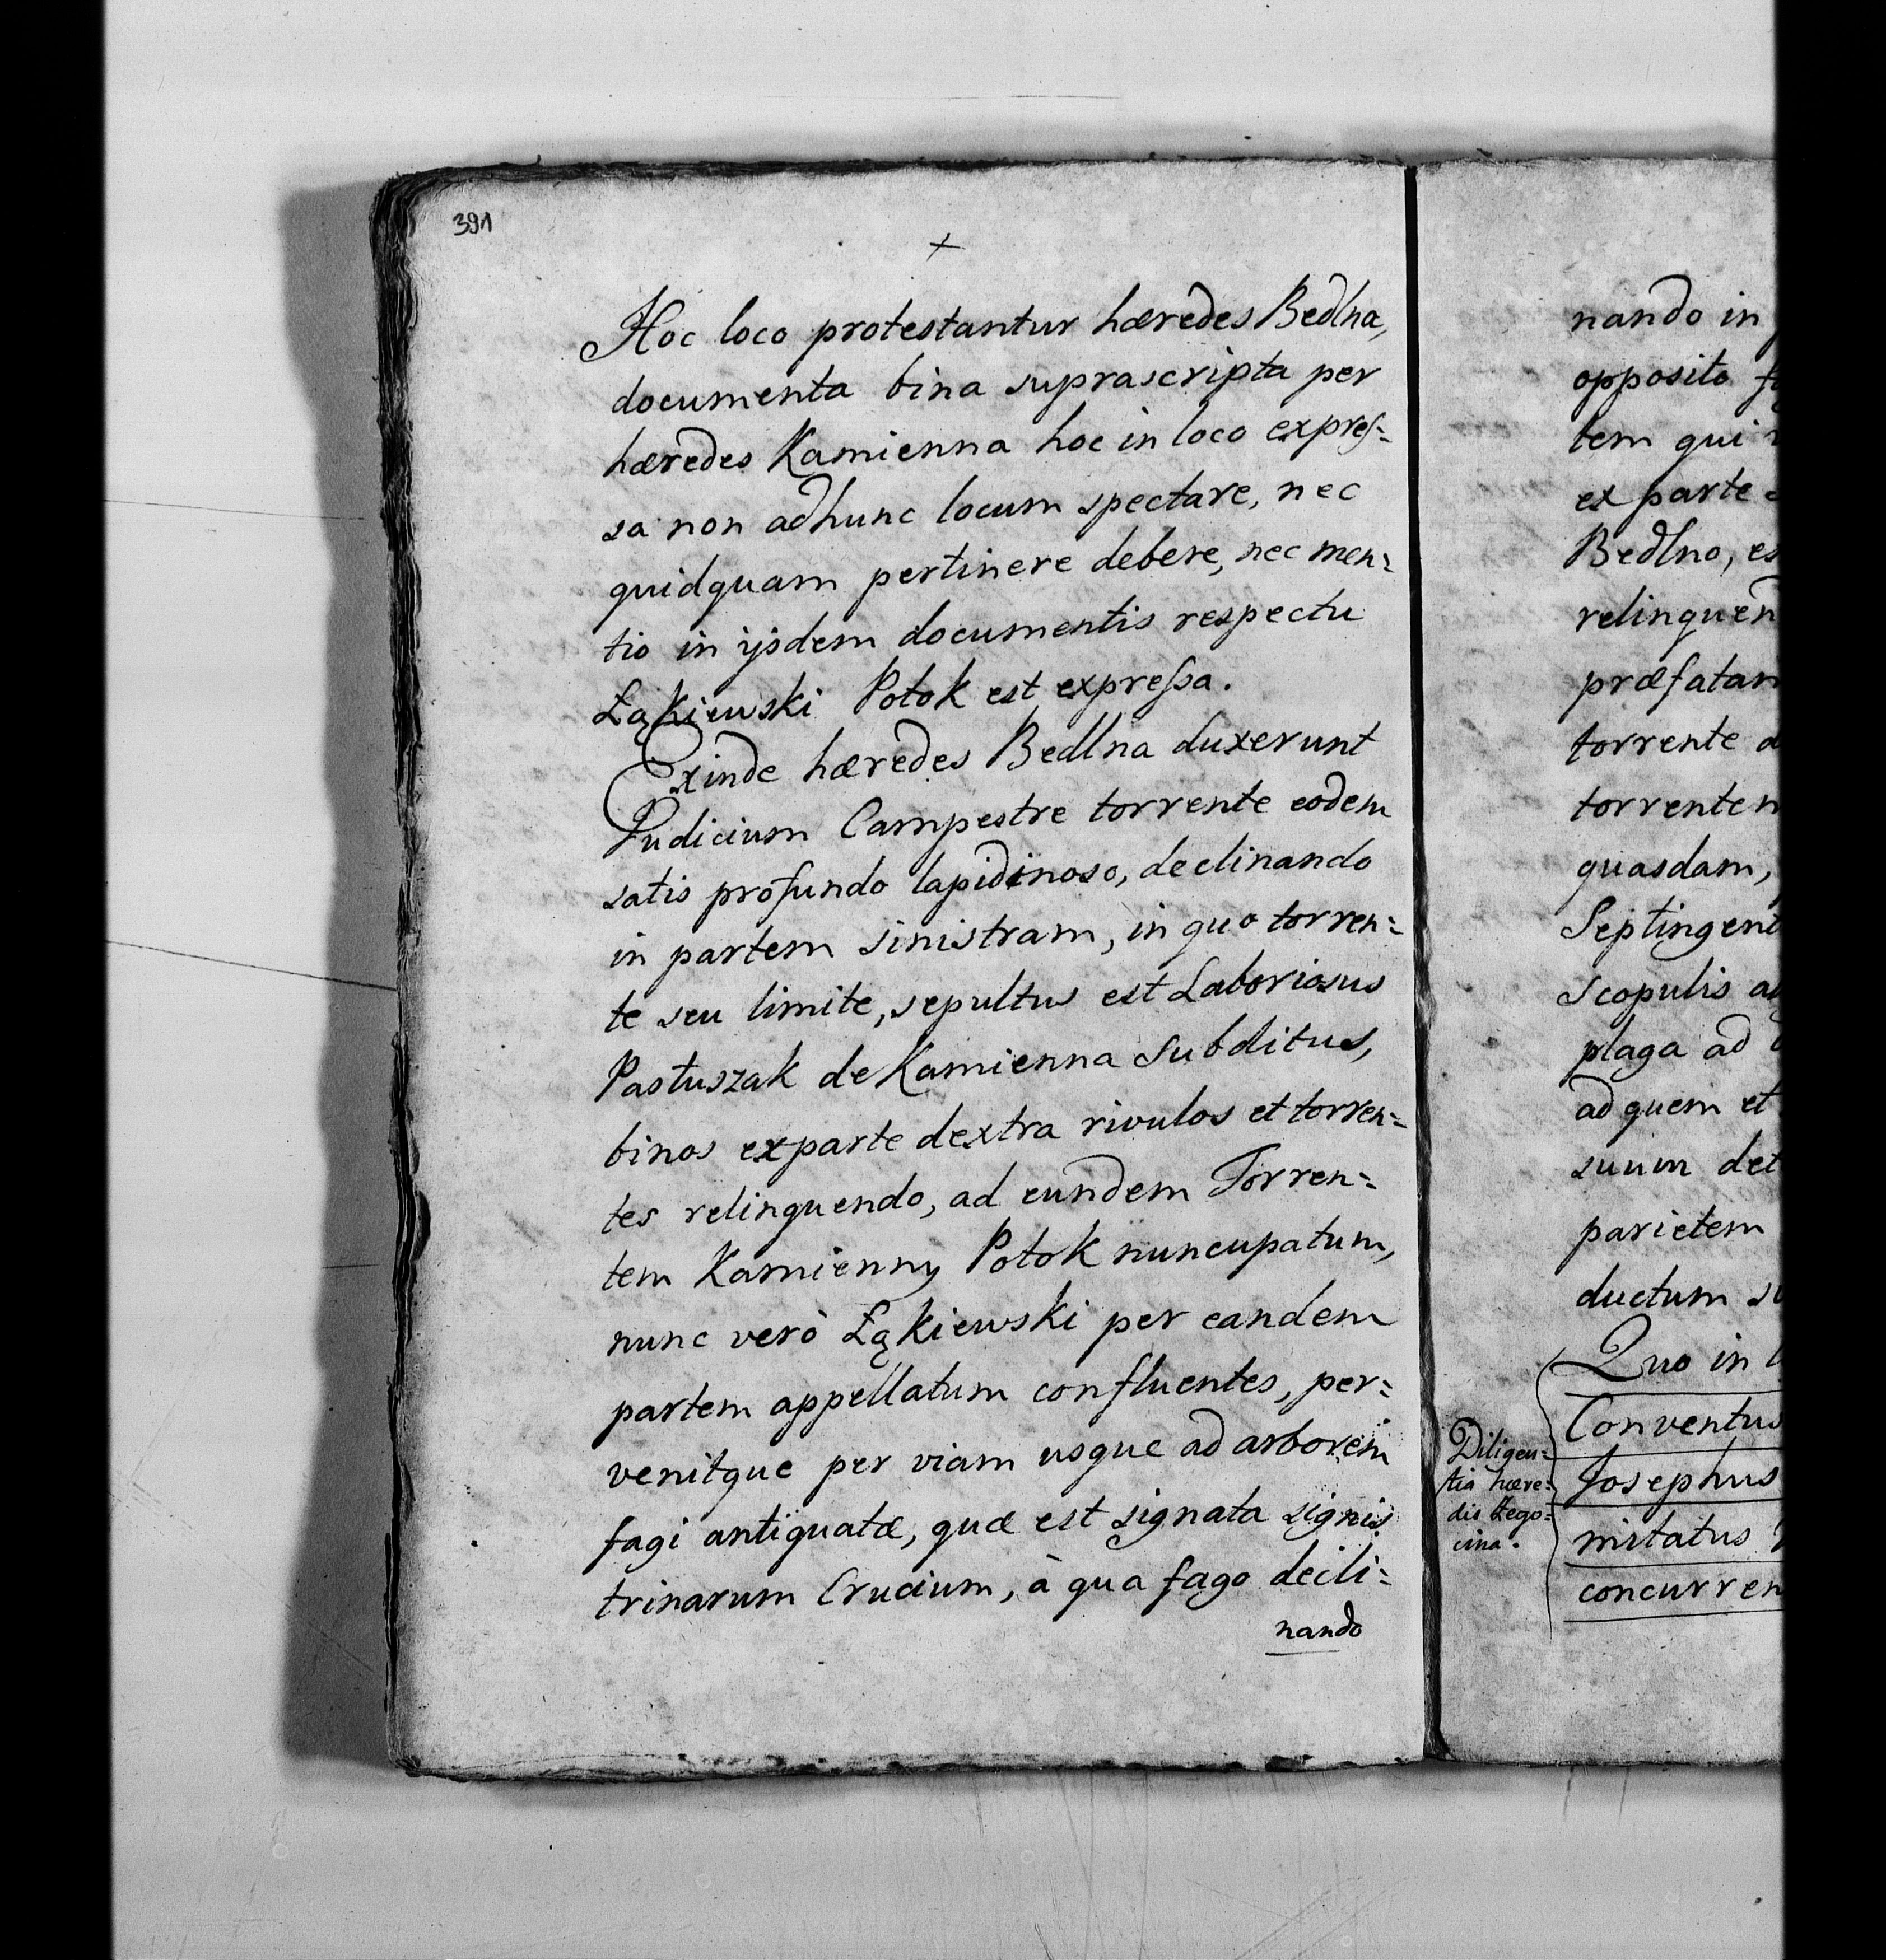 391
+
Hoc loco protestantur hæredes Bedlna,
documenta bina suprascripta per
hæredes Kamienna hoc in loco expreſ=
sa non ad hunc locum spectare, nec
quidquam pertinere debere, nec men=
tio in ijsdem documentis respectu
Łąkiewski Potok est expreſsa.
Exinde hæredes Bedlna duxerunt
Judicium Campestre torrente eodem
satis profundo lapidinoso, declinando
in partem sinistram, in quo torren=
te seu limite, sepultus est Laboriosus
Pastuszak de Kamienna subditus,
binos ex parte dextra rivulos et torren=
tes relinquendo, ad eundem Torren=
tem Kamienny Potok nuncupatum,
nunc verò Łąkiewski per eandem
partem appellatum confluentes, per=
venitque per viam usque ad arborem
fagi antiquatæ, quæ est signata signis
trinarum Crucium, à qua fago decli=
nando
nando in
opposito
tem qui
ex parte
Bedlno, es
relinquen
præfatam
torrente
torrentem
quasdam,
Septingent
scopulis
plaga ad
ad quem et
suum det
parietem
ductum
Quo in
Conventus
Josephus
mitatus
concurren
Diligen=
tia hære=
dis Żego=
cina.